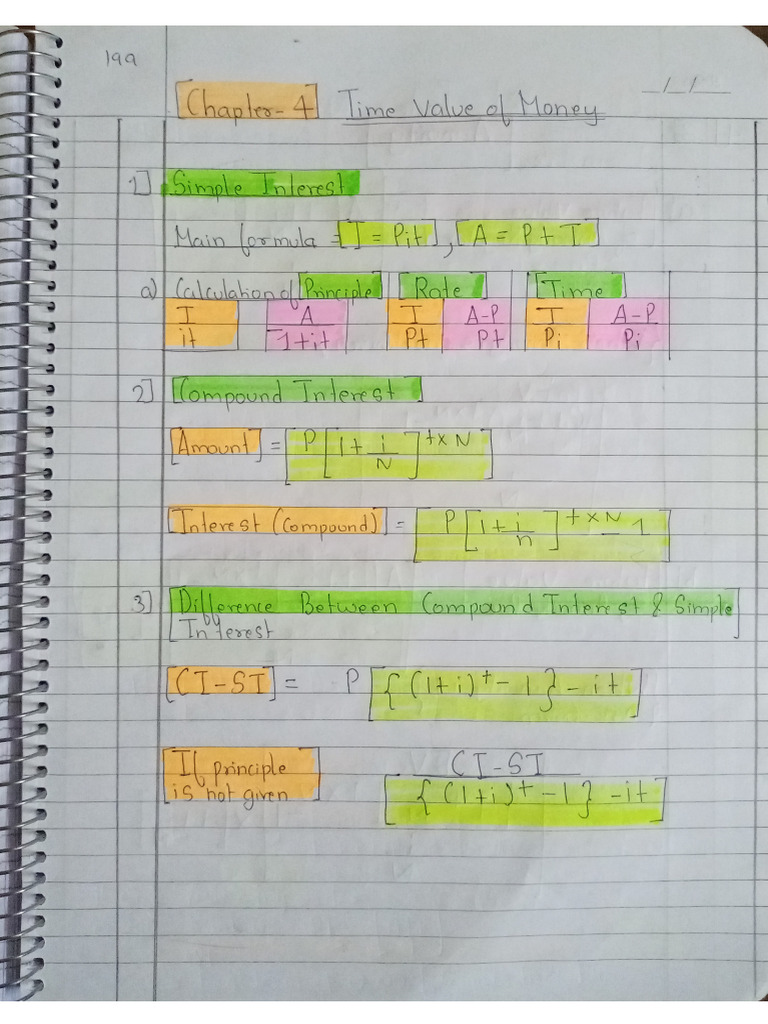 199
_/_/__
Chapter-4 Time Value of Money
1] Simple Interest
Main formula = I = Pit , A = P + I
a) Calculation of Principle | Rate | Time
I/it A/1+it | I/Pt A-P/Pt | I/Pi A-P/Pi
2] Compound Interest
Amount = P[1+i/N]^t×N
Interest (Compound) = P[1+i/n]^t×N - 1
3] Difference Between Compound Interest & Simple
Interest
[CI-SI] = P [{(1+i)^t - 1} - it]
If principle
is not given
CI-SI
[{(1+i)^t - 1} - it]